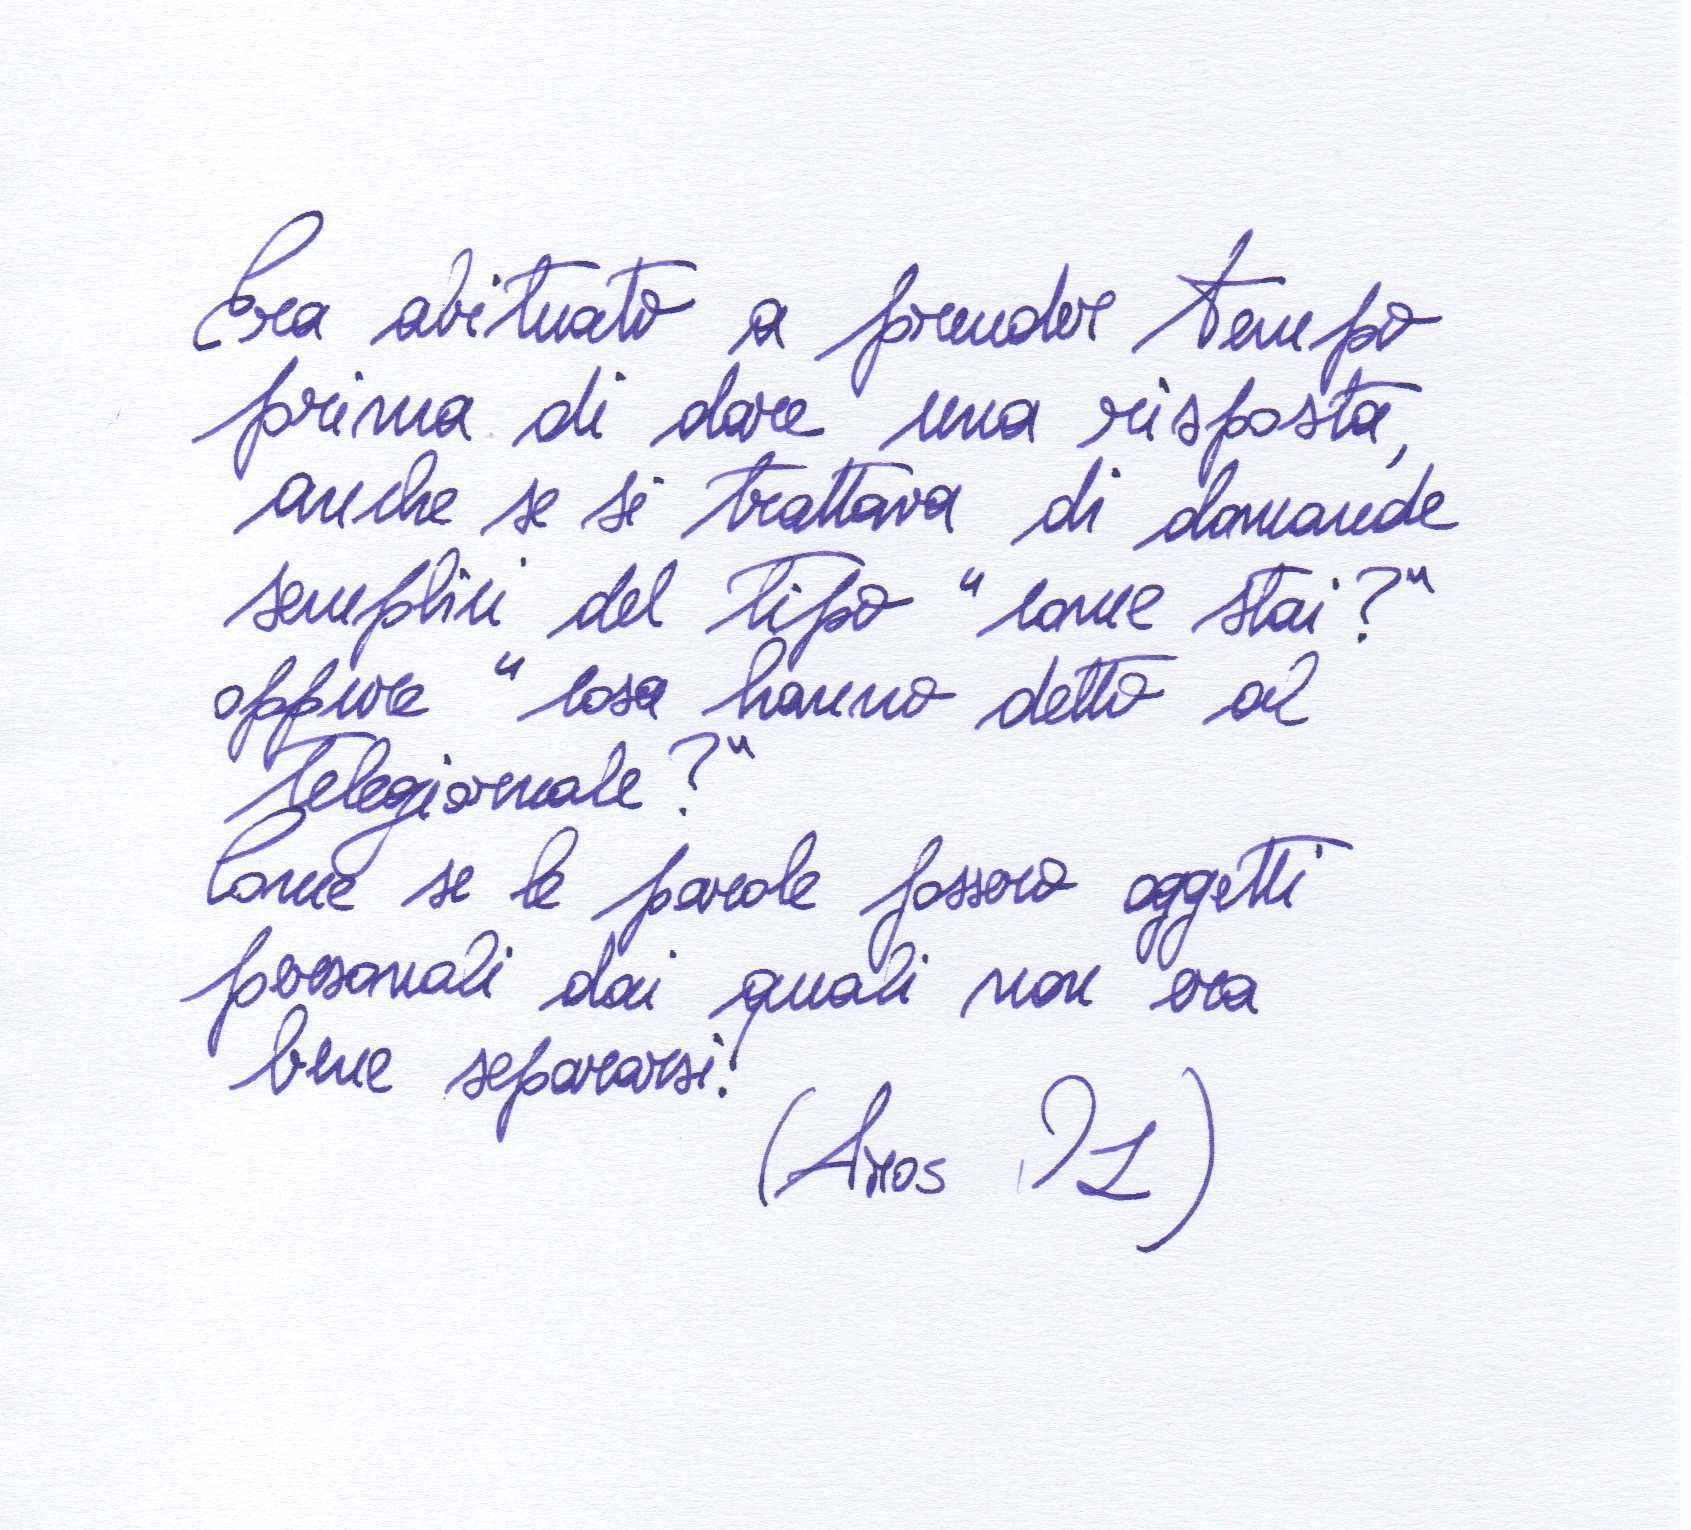 Era abituato a prender tempo
prima di dare una risposta,
anche se si trattava di domande
semplici del tipo "come stai?"
oppure "cosa hanno detto al
telegiornale?"
Come se le parole fossero oggetti
personali dai quali non era
bene separarsi!
(Aros